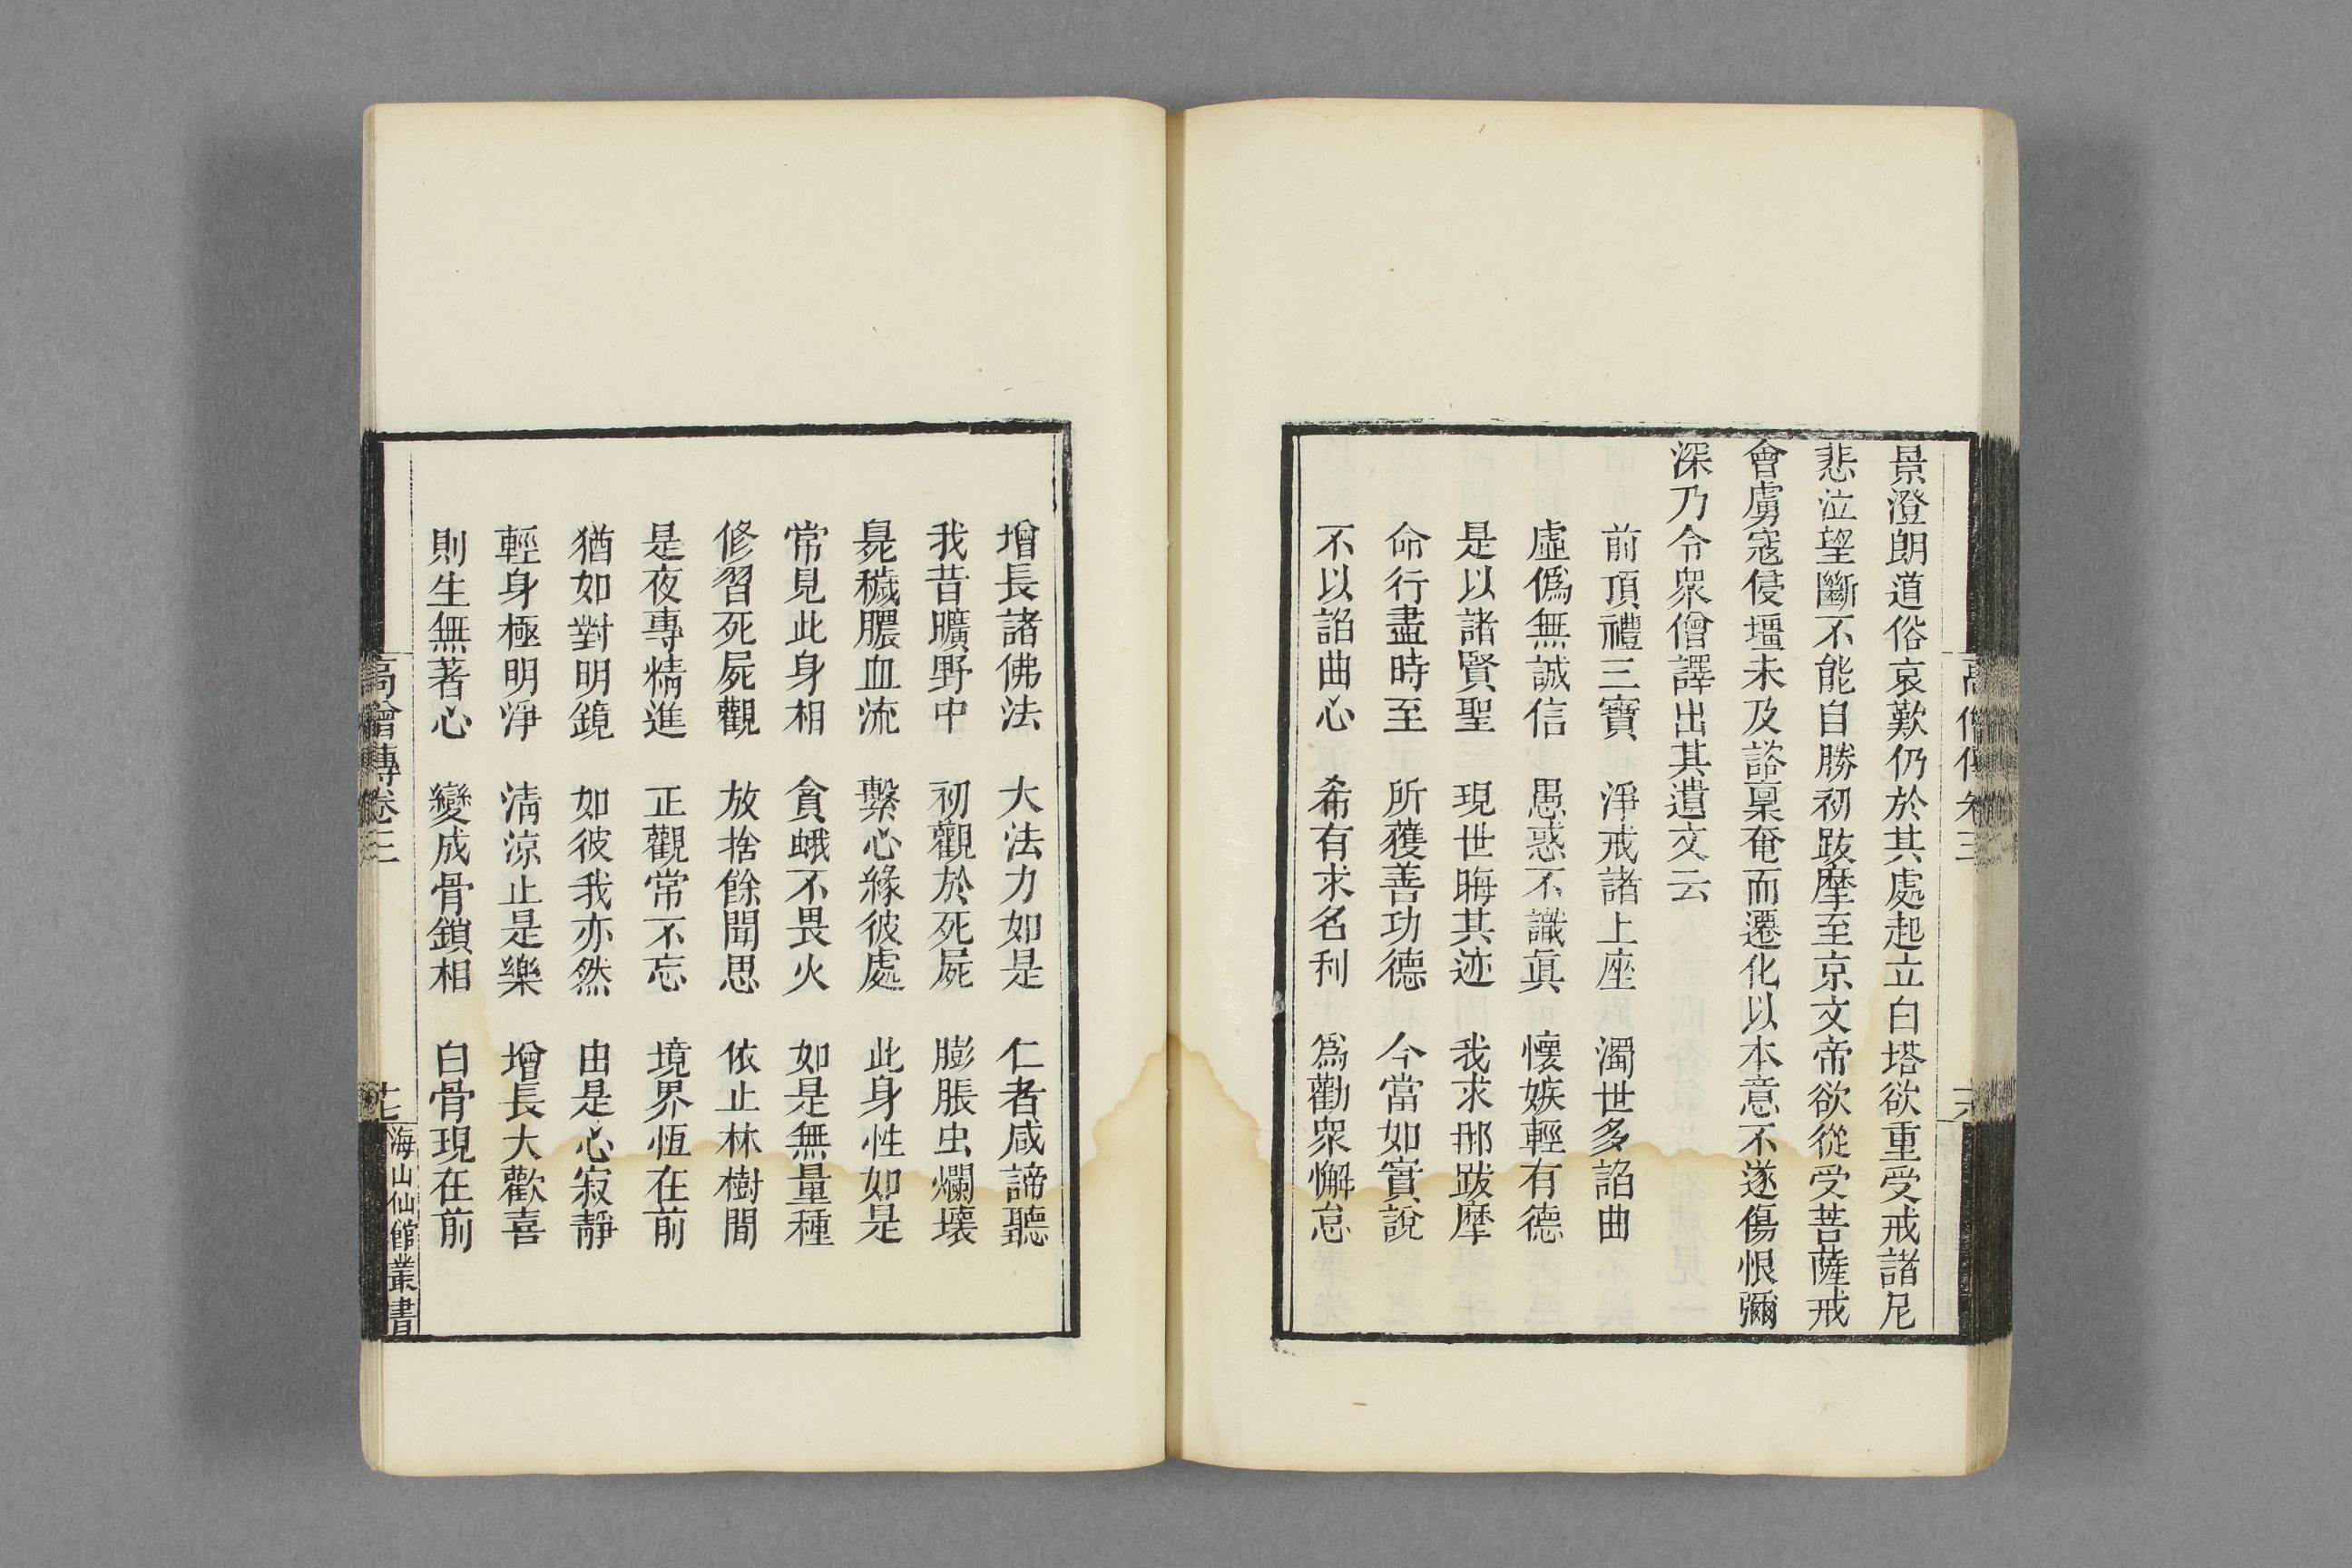 景澄朗道俗哀歎仍於其處起立白塔欲重受戒諸尼
悲泣望斷不能自勝初跋摩至京文帝欲從受菩薩戒
會虜寇侵壃未及諮稟奄而遷化以本意不遂傷恨彌
深乃令衆僧譯出其遺文云
前頂禮三寶　淨戒諸上座　濁世多諂曲
虛僞無誠信　愚惑不識眞　懷嫉輕有德
是以諸賢聖　現世晦其迹　我求那跋摩
命行盡時至　所獲善功德　今當如實說
不以諂曲心　希有求名利　爲勸衆懈怠
增長諸佛法　大法力如是　仁者咸諦聽
我昔曠野中　初觀於死屍　膨脹虫爛壞
臰穢膿血流　繫心緣彼處　此身性如是
常見此身相　貪蛾不畏火　如是無量種
修習死屍觀　放捨餘聞思　依止林樹間
是夜專精進　正觀常不忘　境界恆在前
猶如對明鏡　如彼我亦然　由是心寂靜
輕身極明淨　清涼止是樂　增長大歡喜
則生無著心　變成骨鎖相　白骨現在前
高僧傳卷三
十七
海山仙館叢書